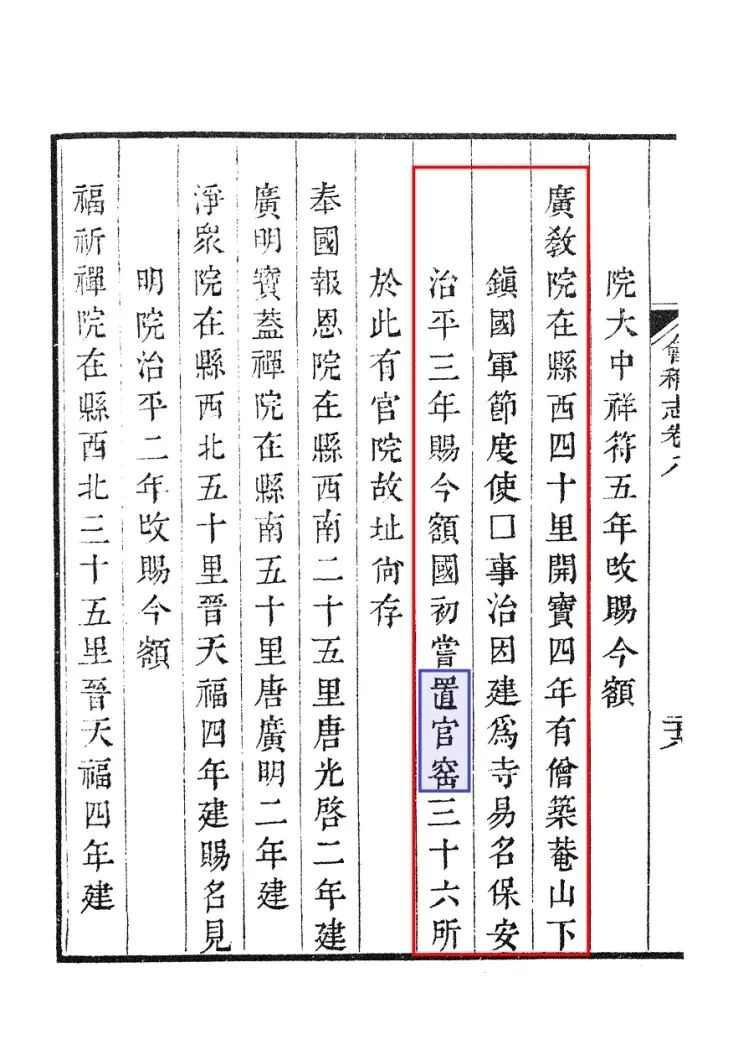 會稽志卷八
院大中祥符五年改賜今額
廣教院在縣西四十里開寶四年有僧築菴山下
鎮國軍節度使□事治因建爲寺易名保安
治平三年賜今額國初嘗置官窑三十六所
於此有官院故址尙存
奉國報恩院在縣西南二十五里唐光啓二年建
廣明寶蓋禪院在縣南五十里唐廣明二年建
淨衆院在縣西北五十里晉天福四年建賜名見
明院治平二年改賜今額
福祈禪院在縣西北三十五里晉天福四年建